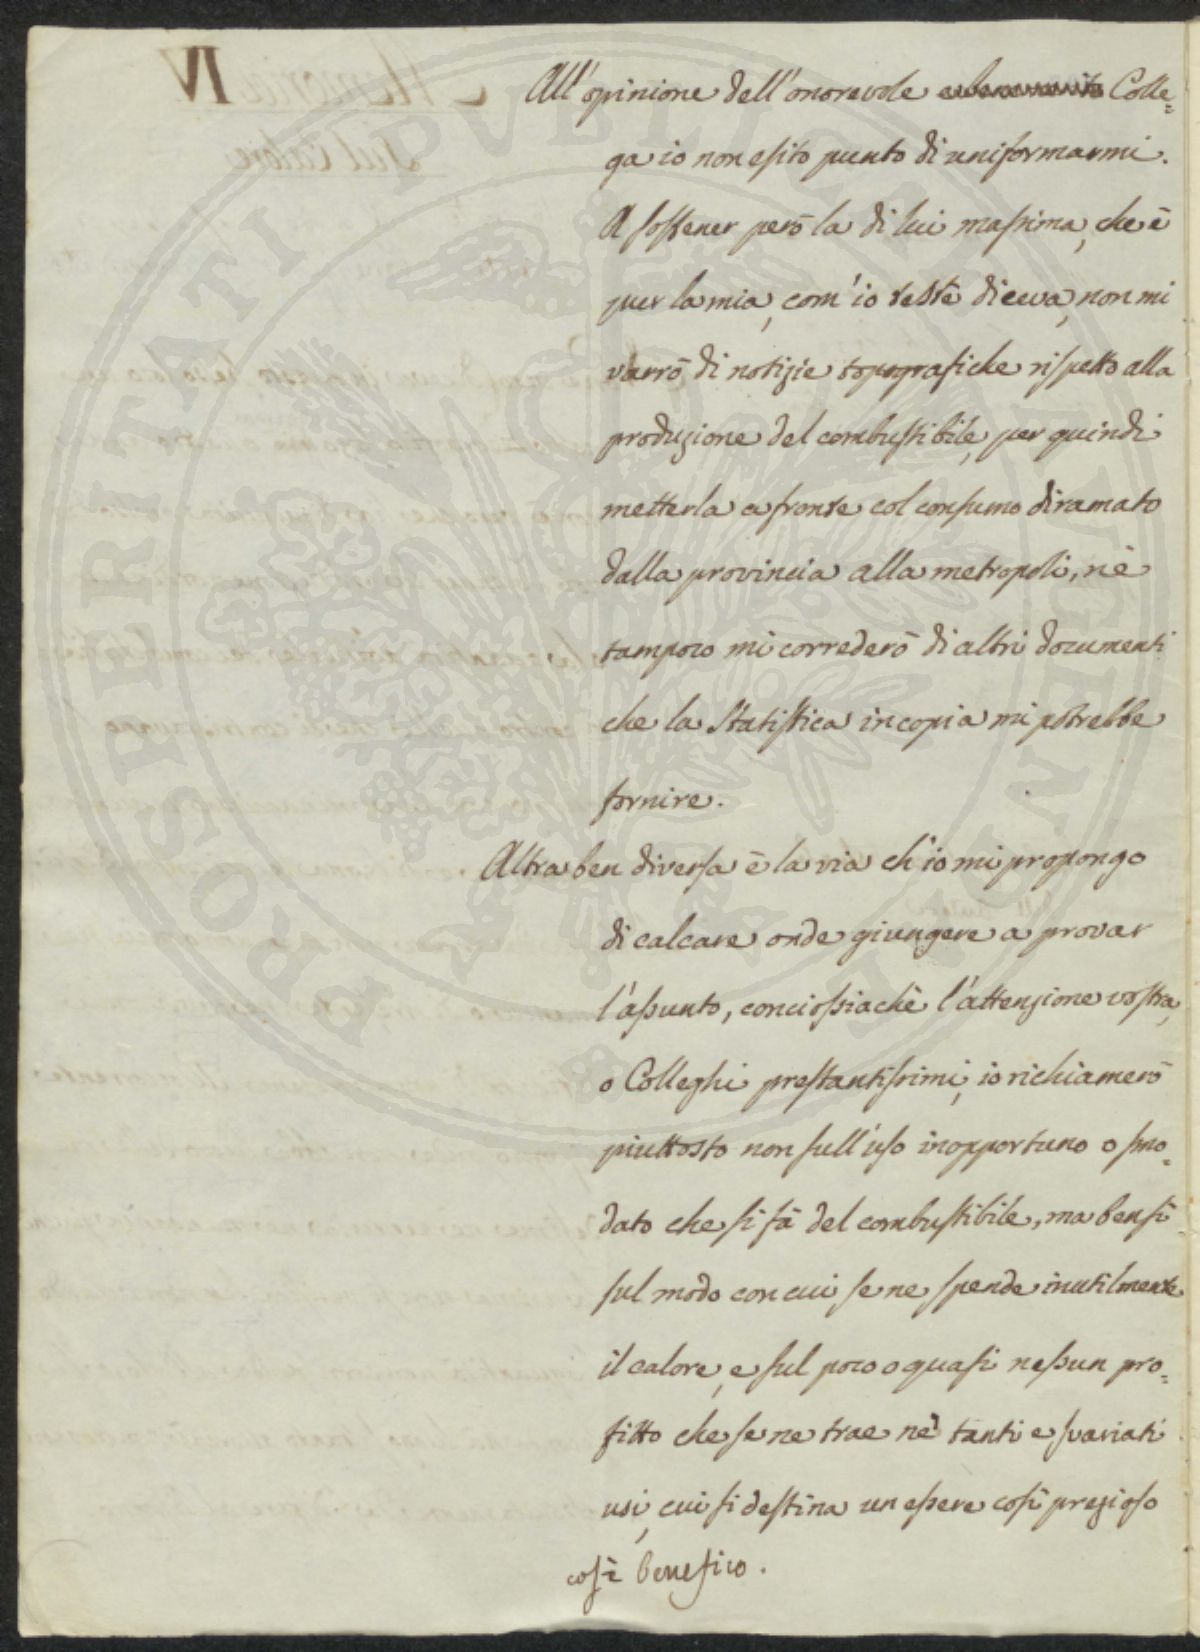 All'opinione dell'onorevole Colle=
ga io non esito punto di uniformarmi.
A sostener però la di lui massima, che è
pur la mia, com'io testè diceva, non mi
varrò di notizie topografiche rispetto alla
produzione del combustibile, per quindi
metterla a fronte col consumo diramato
dalla provincia alla metropoli, nè
tampoco mi correderò di altri documenti
che la Statistica in copia mi potrebbe
fornire.
Altra ben diversa è la via ch'io mi propongo
di calcare onde giungere a provar
l'assunto, conciossiachè l'attenzione vostra,
o Colleghi prestantissimi, io richiamerò
piuttosto non sull'uso inopportuno o smo=
dato che si fà del combustibile, ma bensì
sul modo con cui se ne spende inutilmente
il calore, e sul poco o quasi nessun pro=
fitto che se ne trae ne' tanti e svariati
usi, cui si destina un essere così prezioso
così benefico.
PROSPERITATI PVBLICAE AVGENDAE